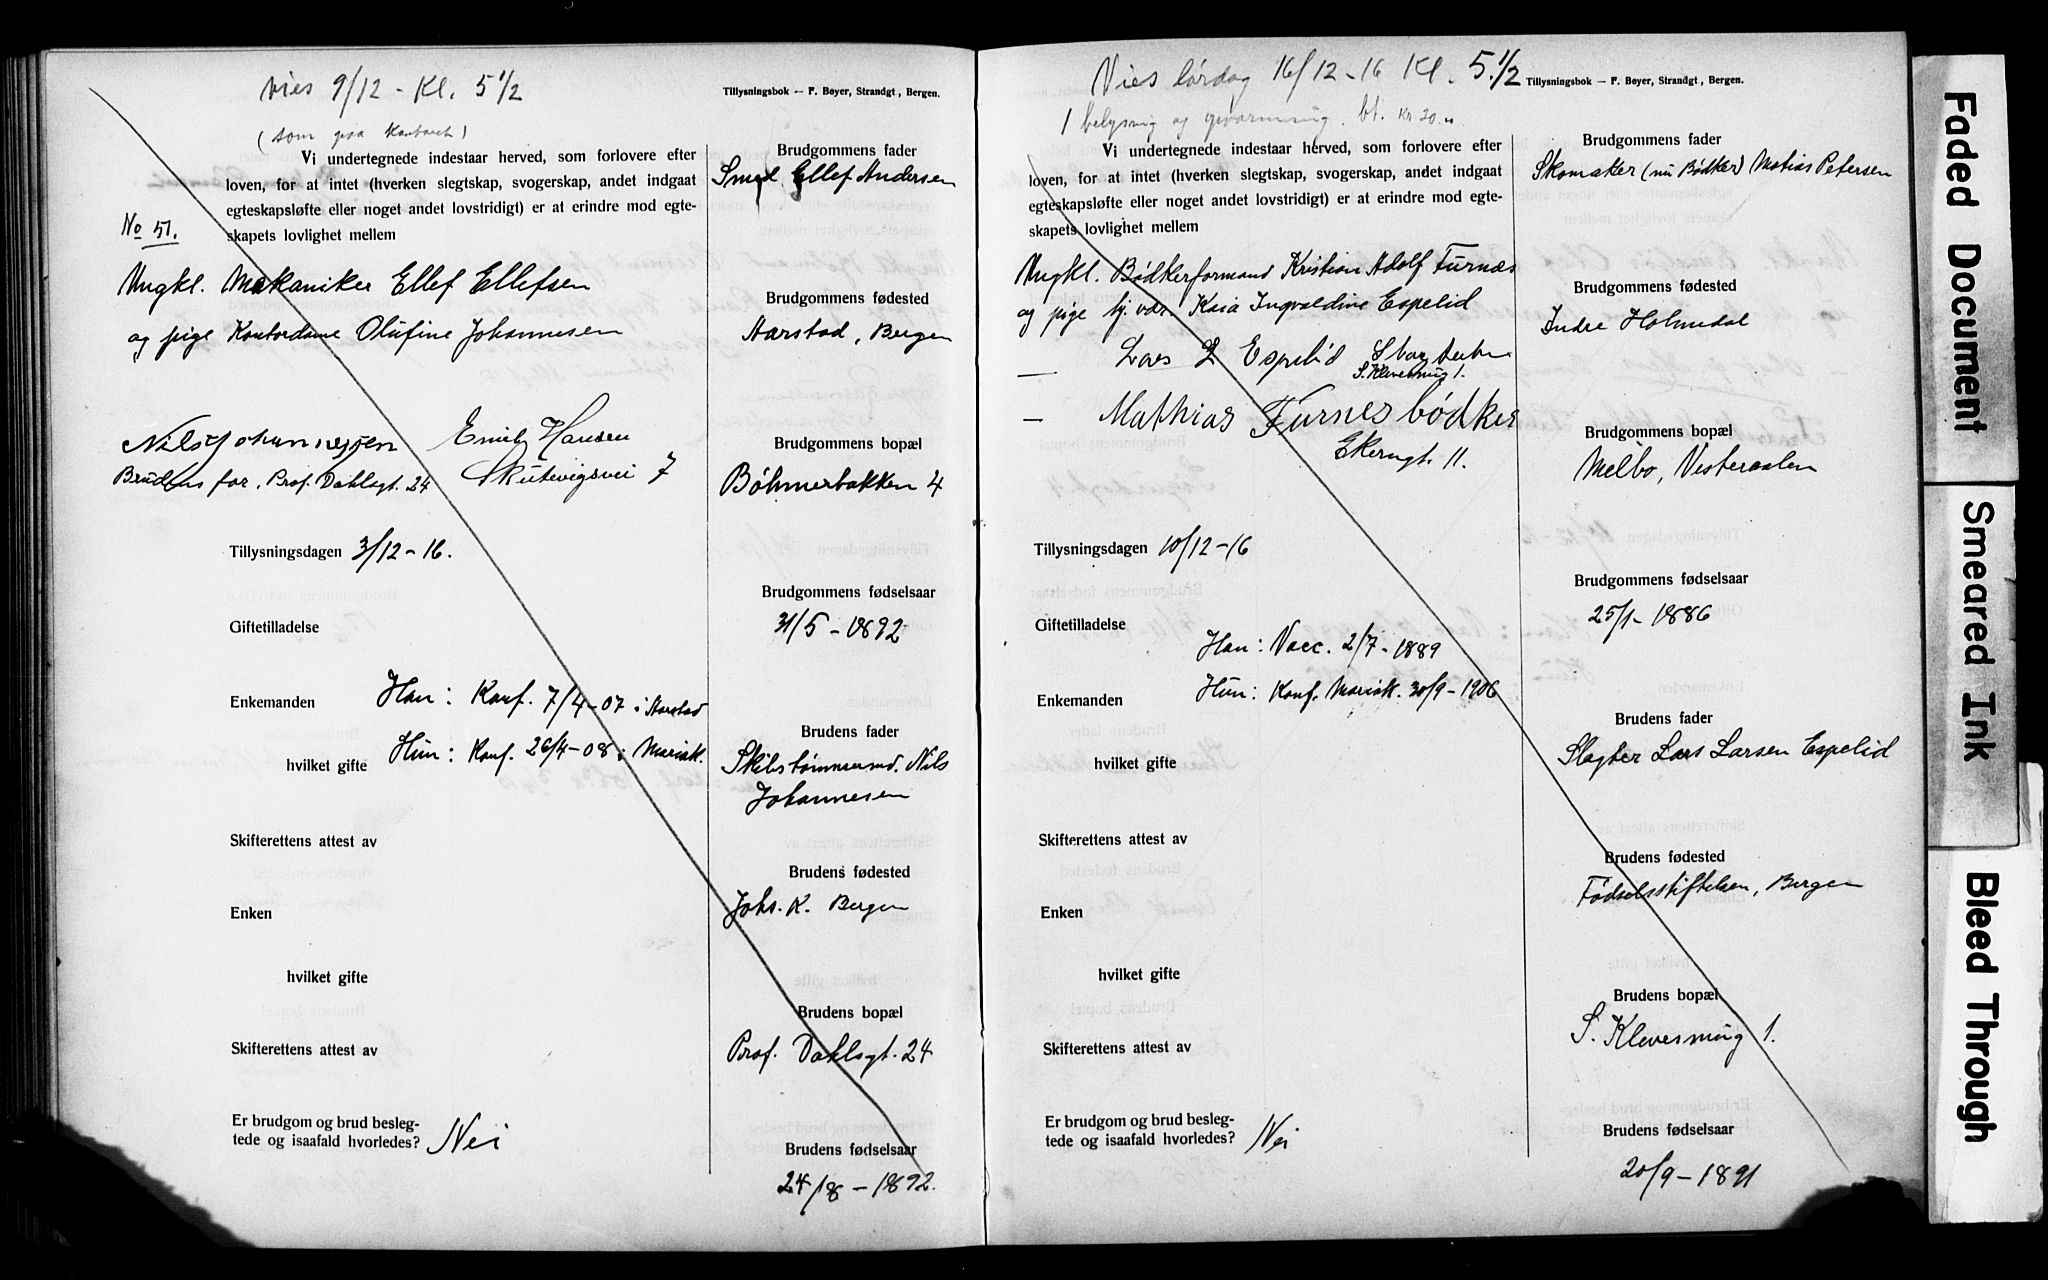 Vies 9/12 - Kl. 5 1/2
Tillysningsbok — F. Bøyer, Strandgt, Bergen.
(som
Vi undertegnede indestaar herved, som forlovere efter
loven, for at intet (hverken slegtskap, svogerskap, andet indgaat
egteskapsløfte eller noget andet lovstridigt) er at erindre mod egte-
skapets lovlighet mellem
No 51.
Ungkl. Mekaniker Ellef Ellefsen
og pige Kontordame Olufine Johannesen
Nils Johannessen Emil Hansen
Brudens far. Prof. Dahlsgt. 24 Skutevigsvei 7
Tillysningsdagen 3/12-16.
Giftetilladelse
Enkemanden Han: Konf. 7/4-07 i Aarstad
hvilket gifte Hun: Konf. 26/4-08 i Mariak.
Skifterettens attest av
Enken
hvilket gifte
Skifterettens attest av
Er brudgom og brud besleg-
tede og isaafald hvorledes? Nei
Brudgommens fader
Smed Ellef Andersen
Brudgommens fødested
Aarstad, Bergen
Brudgommens bopæl
Bøhmerbakken 4
Brudgommens fødselsaar
31/5-1892
Brudens fader
Skibstømmermd. Nils
Johannesen
Brudens fødested
Johs. K. Bergen
Brudens bopæl
Prof. Dahlsgt. 24
Brudens fødselsaar
24/8-1892.
Vies lørdag 16/12-16 Kl. 5.1/2
Tillysningsbok — F. Bøyer, Strandgt, Bergen.
belysnig og opvarmning. bt. Kr 20.
Vi undertegnede indestaar herved, som forlovere efter
loven, for at intet (hverken slegtskap, svogerskap, andet indgaat
egteskapsløfte eller noget andet lovstridigt) er at erindre mod egte-
skapets lovlighet mellem
Ungkl. Bødkerformand Kristian Adolf Furnæs
og pige hj. vær. Kaia Ingvaldine Espelid
— Lars L Espelid
S. Klevesmug 1.
— Mathias Furnes bødker
Ekerngt. 11.
Tillysningsdagen 10/12-16
Giftetilladelse
Han: Vacc. 2/7-1889
Enkemanden Hun: Konf. Mariak. 30/9-1906
hvilket gifte
Skifterettens attest av
Enken
hvilket gifte
Skifterettens attest av
Er brudgom og brud besleg-
tede og isaafald hvorledes? Nei
Brudgommens fader
Skomaker (nu Bødker) Matias Petersen
Brudgommens fødested
Indre Holmedal
Brudgommens bopæl
Melbo, Vesteraalen
Brudgommens fødselsaar
25/1-1886
Brudens fader
Slagter Lars Larsen Espelid
Brudens fødested
Fødselsstiftelsen, Bergen
Brudens bopæl
S. Klevesmug 1.
Brudens fødselsaar
20/9-1891
Faded Document
Smeared Ink
Bleed Through